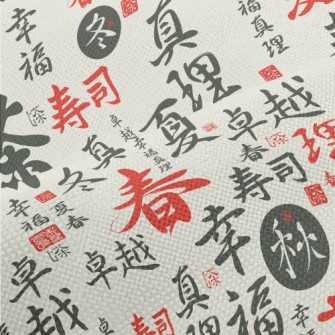 幸福
冬
真理
真理
寿司
卓越幸福真理
夏
卓越
茶
冬真
春
寿司
春
幸福
夏春
卓越
卓越
幸福
秋
真理